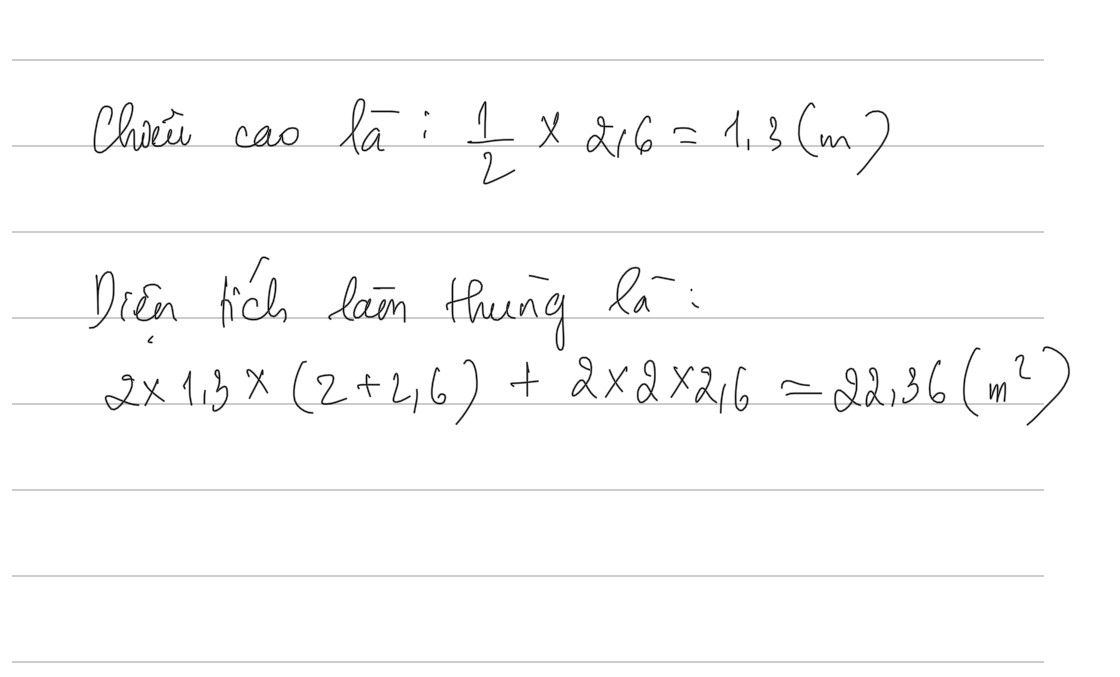 Chiều cao là : 1/2 x 2,6 = 1,3 (m)
Diện tích làm thùng là :
2 x 1,3 x (2 + 2,6) + 2 x 2 x 2,6 = 22,36 (m²)